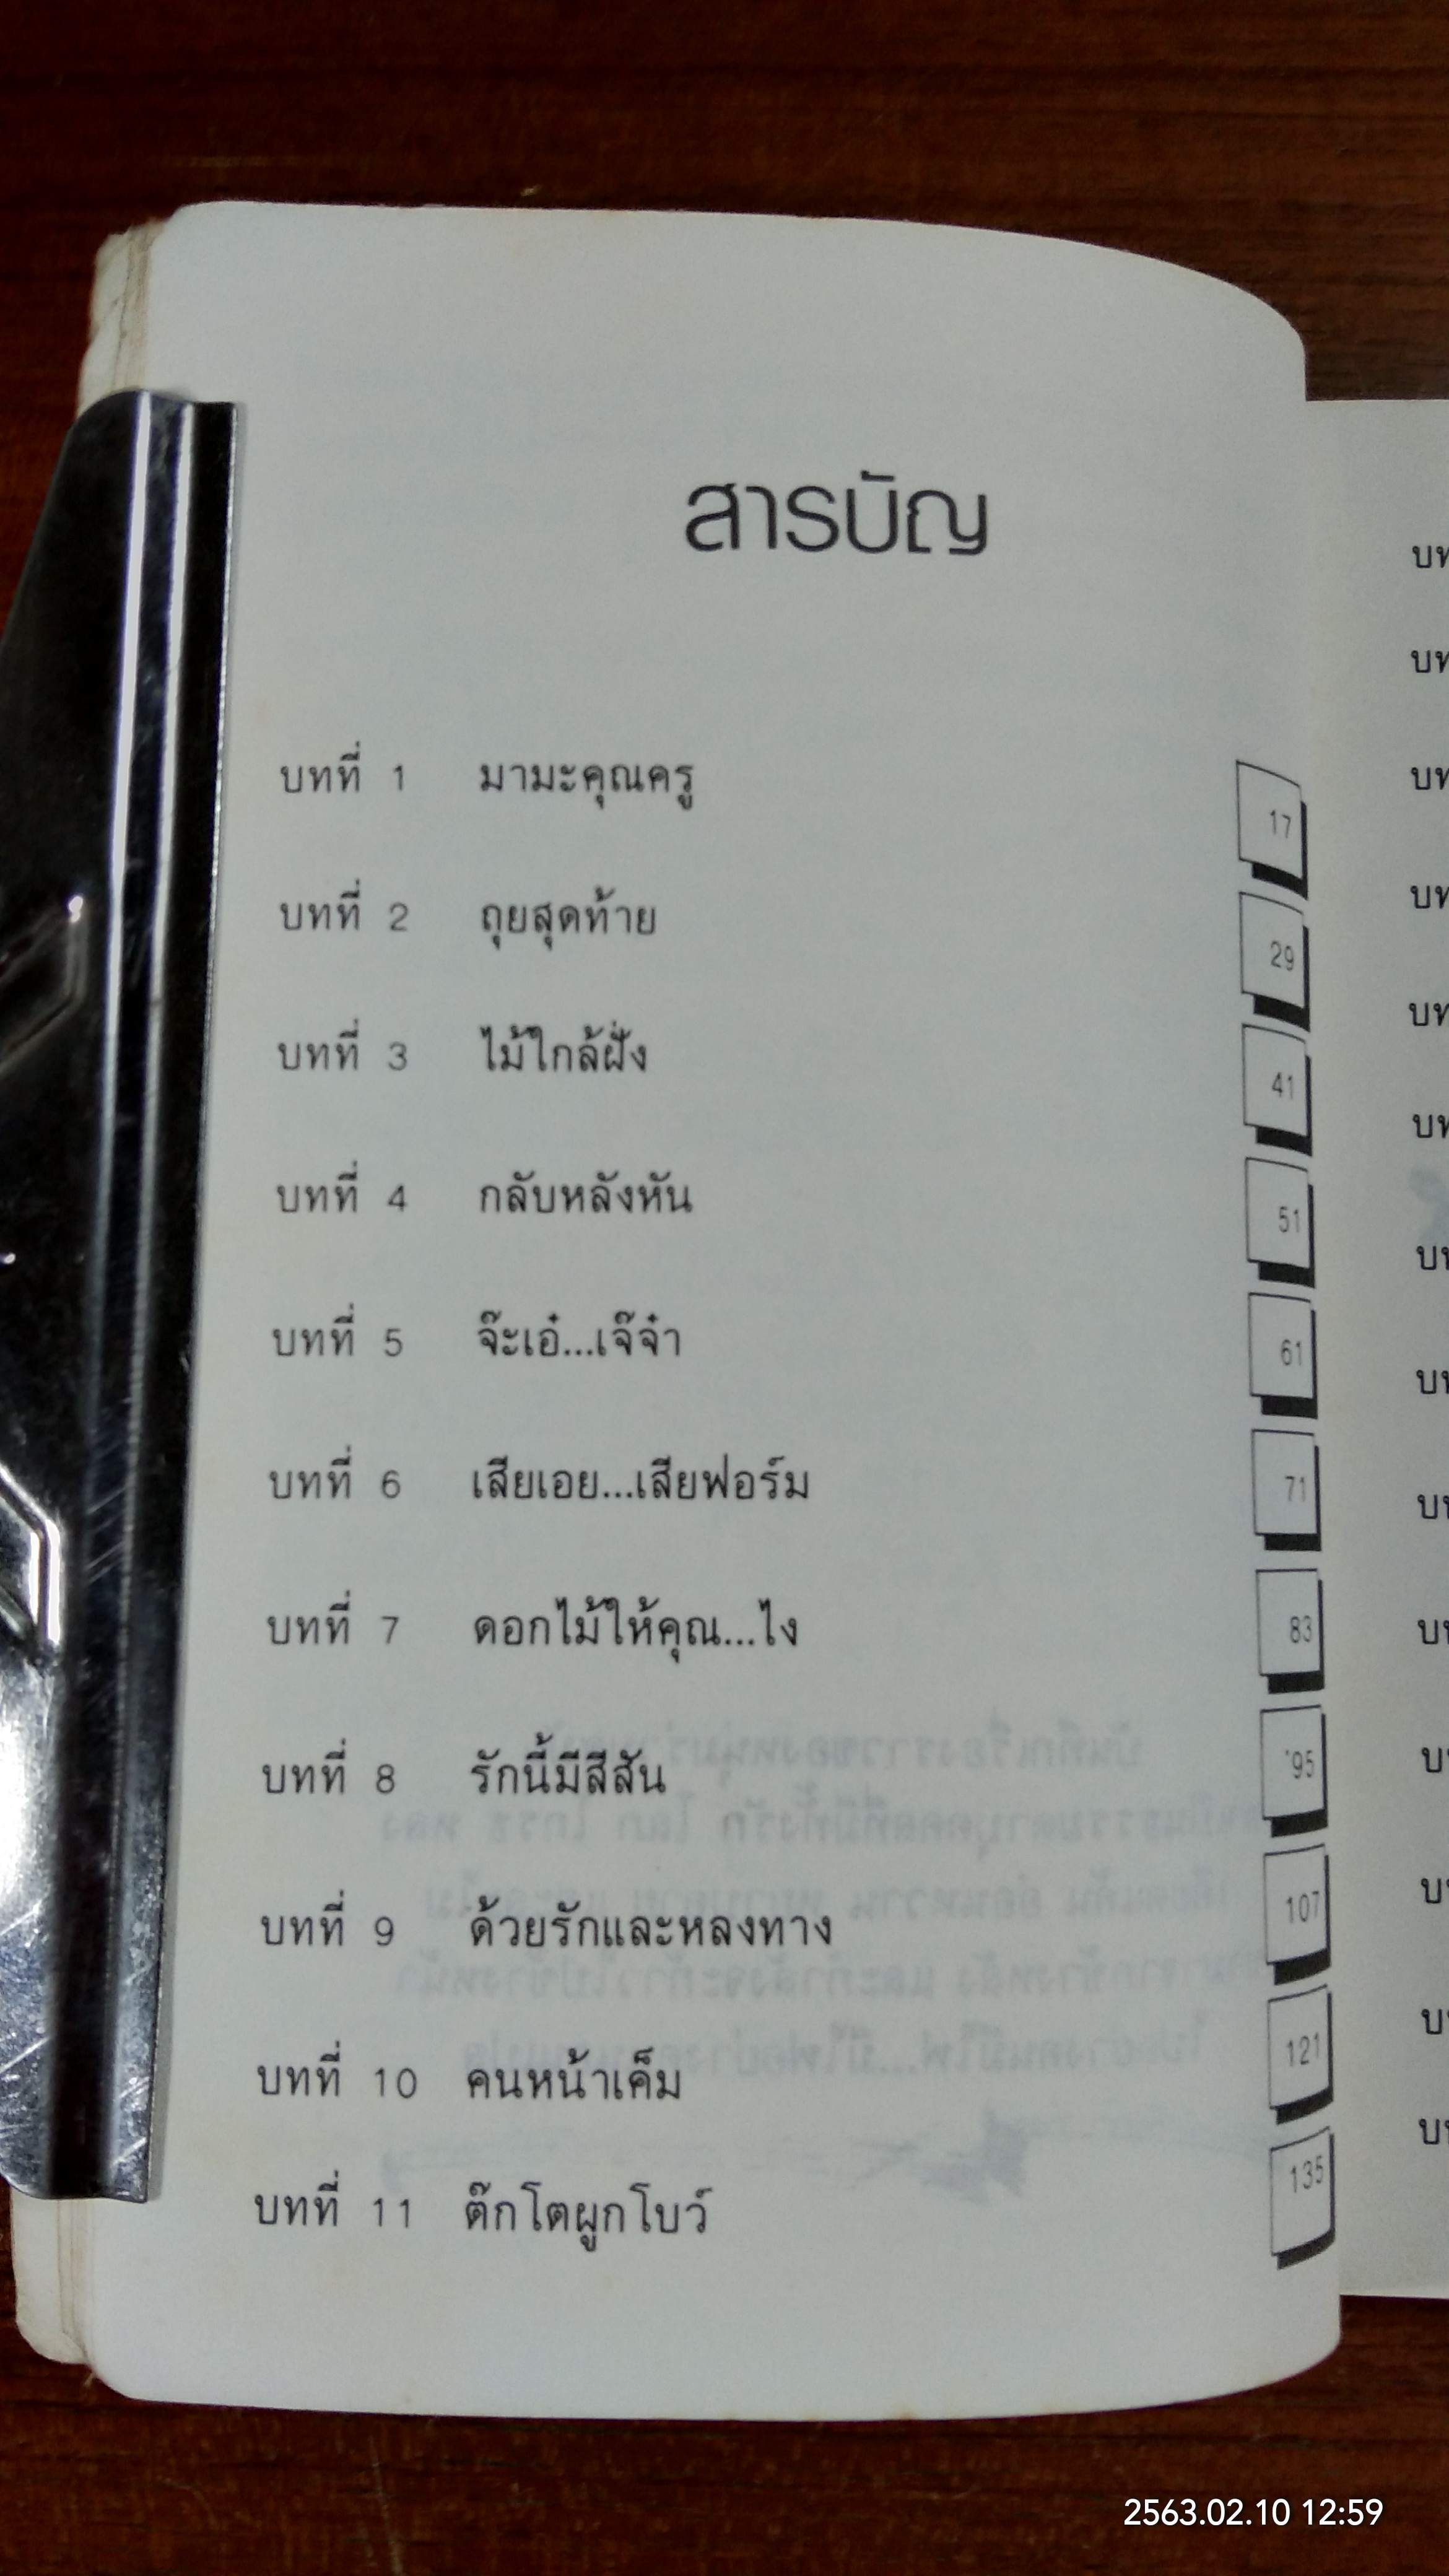 สารบัญ
บทที่ 1 มามะคุณครู 17
บทที่ 2 ถุยสุดท้าย 29
บทที่ 3 ไม้ใกล้ฝั่ง 41
บทที่ 4 กลับหลังหัน 51
บทที่ 5 จ๊ะเอ๋...เจ๊จ๋า 61
บทที่ 6 เสียเอย...เสียฟอร์ม 71
บทที่ 7 ดอกไม้ให้คุณ...ไง 83
บทที่ 8 รักนี้มีสีสัน 95
บทที่ 9 ด้วยรักและหลงทาง 107
บทที่ 10 คนหน้าเค็ม 121
บทที่ 11 ตุ๊กโตผูกโบว์ 135
2563.02.10 12:59